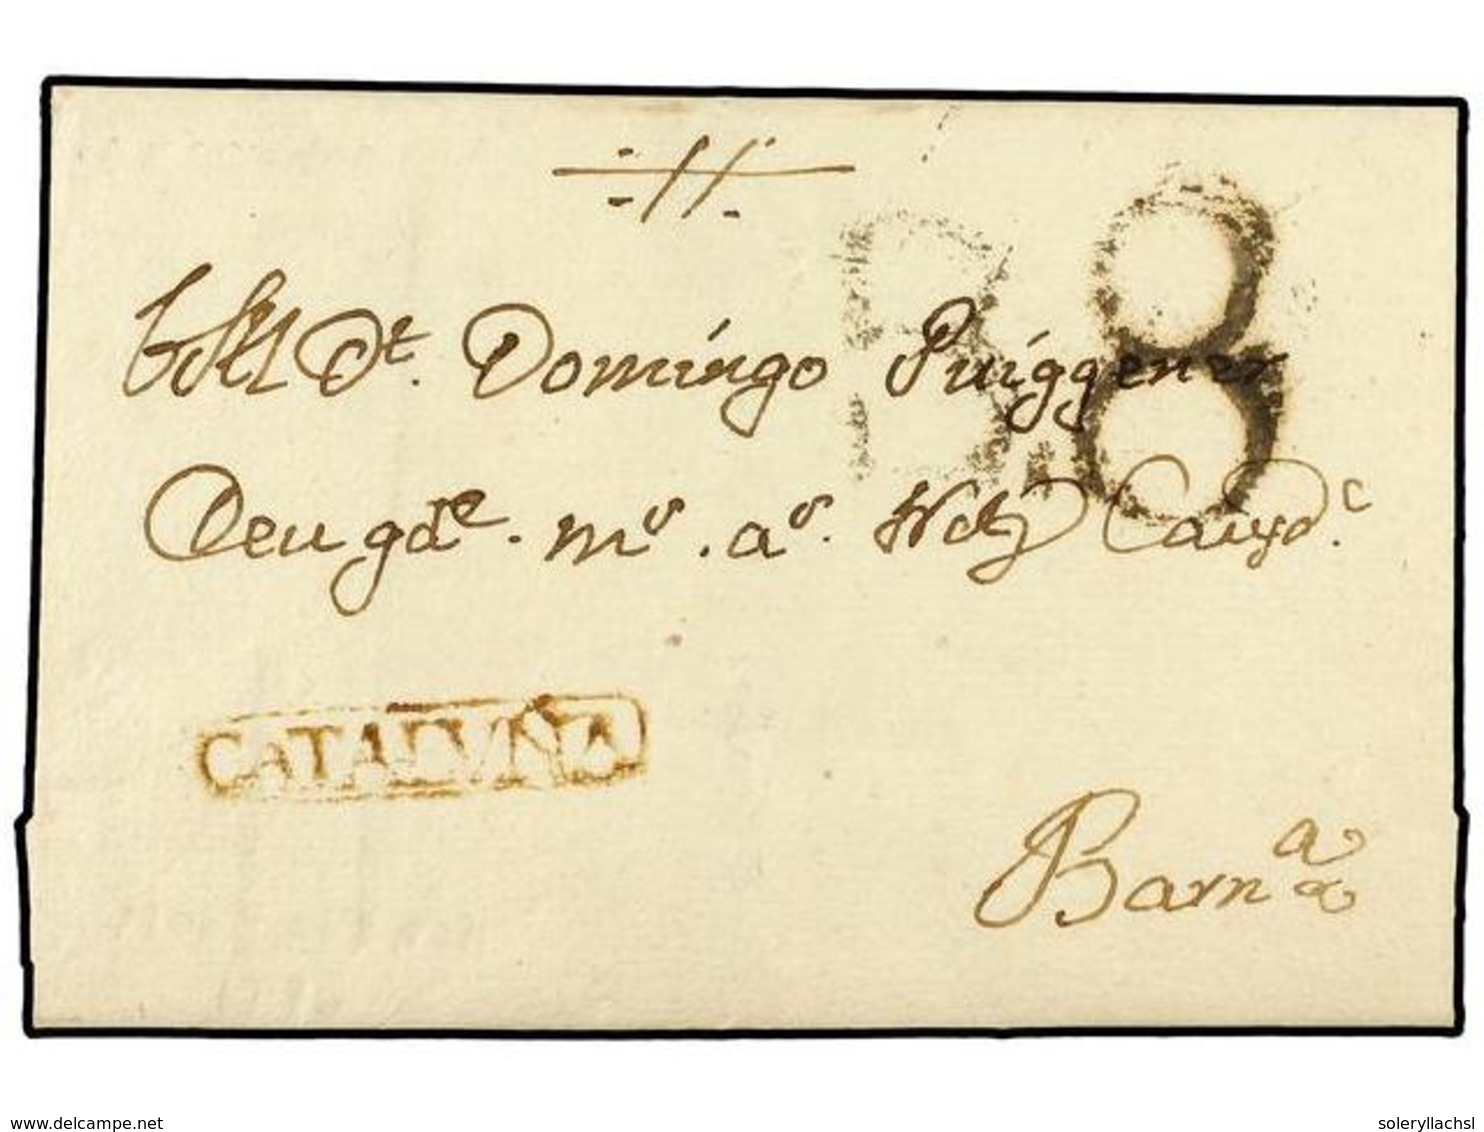 B.8
Dt. Domingo Puiggener
Deu gde. ms. as. Cauyd.c
CATALVÑA
Barna
www.delcampe.net
soleryllachsl